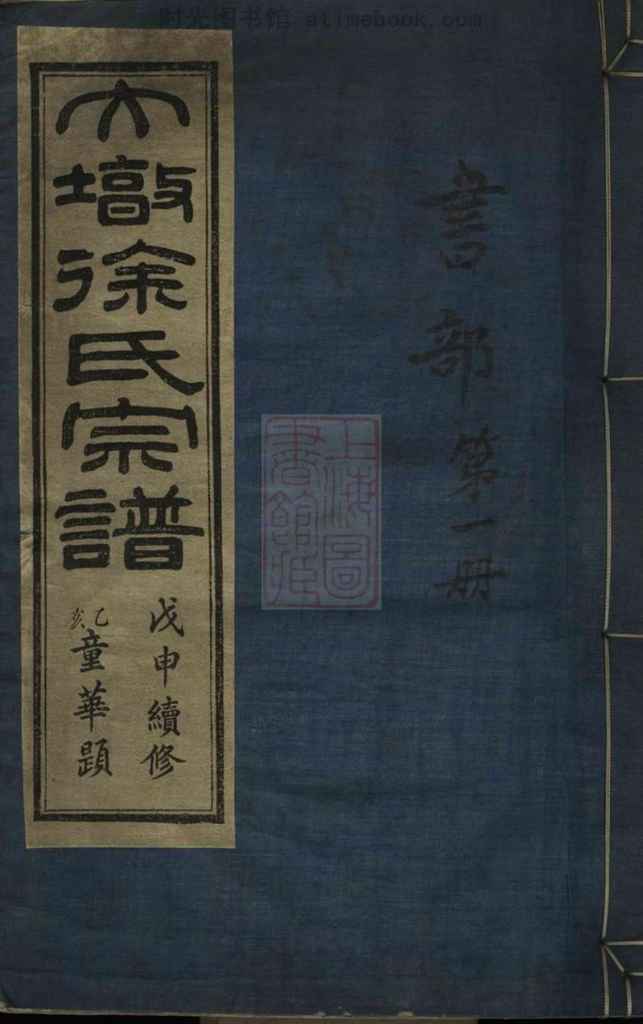 时光图书馆 atimebook.com
書部第一册
大墩徐氏宗譜
戊申續修
乙亥童華題
上海圖書館藏